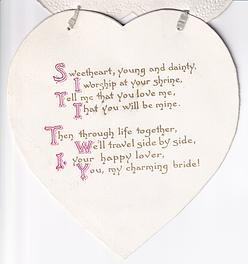 Sweetheart, young and dainty,
I worship at your shrine,
Tell me that you love me,
I That you will be mine.
Then through life together,
We'll travel side by side,
I, your happy lover,
You, my charming bride!